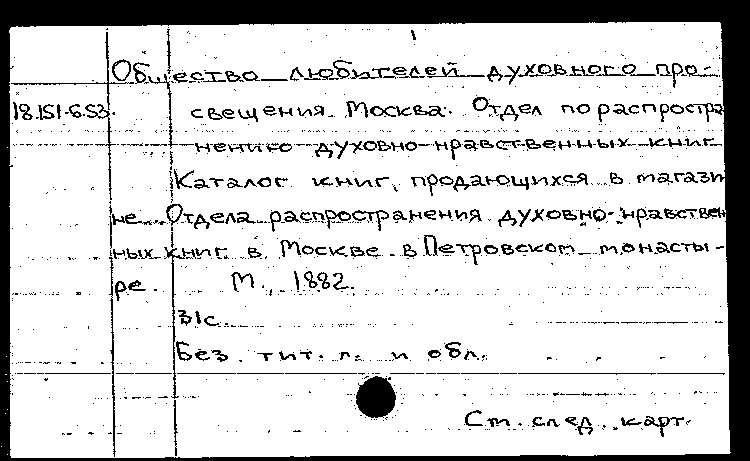 Общество любителей духовного про-
18.151.6.53. свещения. Москва. Отдел по распростра
нению духовно-нравственных книг
Каталог книг, продающихся в магази
не Отдела распространения духовно-нравствен
ных книг в Москве в Петровском монасты-
ре. М., 1882.
31с.
Без тит. л. и обл.
См. след. карт.